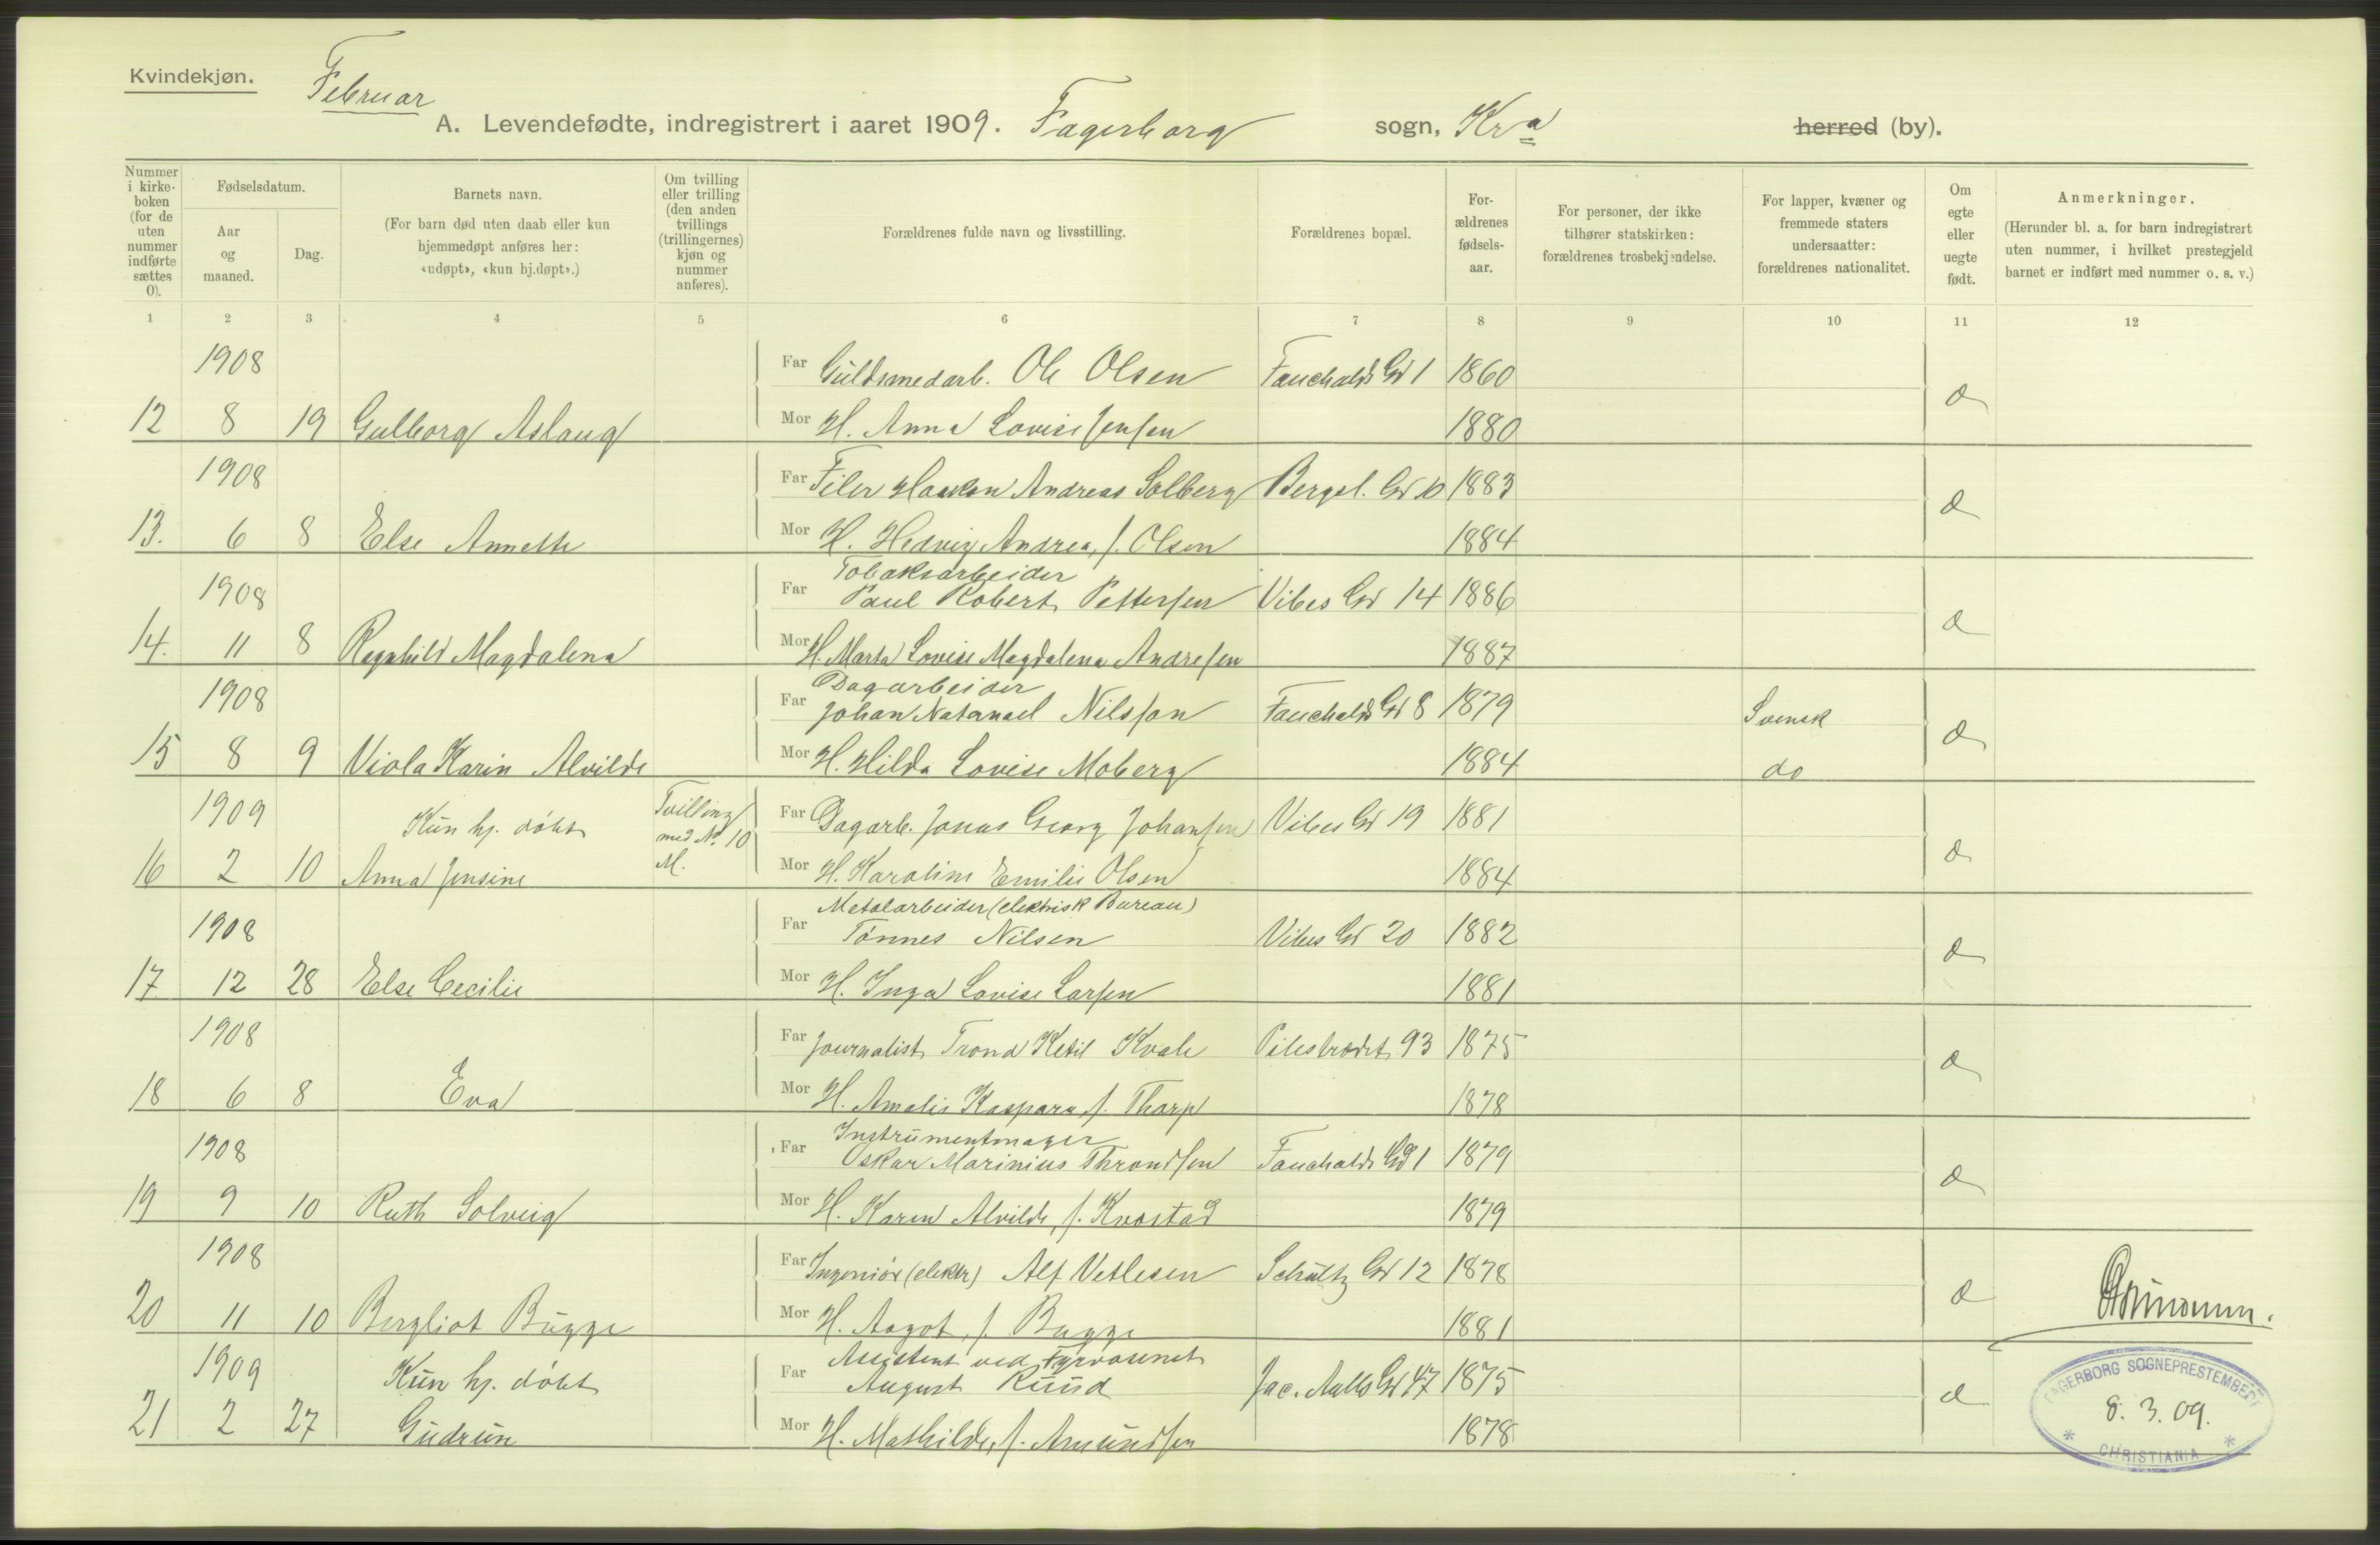 Kvindekjøn.
Februar
A. Levendefødte, indregistrert i aaret 1909. Fagerborg sogn, Kra herred (by).
Nummer i kirke-boken (for de uten nummer indførte sættes 0).
Fødselsdatum.
Aar og maaned.
Dag.
Barnets navn.
(For barn død uten daab eller kun hjemmedøpt anføres her: «udøpt», «kun hj.døpt».)
Om tvilling eller trilling (den anden tvillings (trillingernes) kjøn og nummer anføres).
Forældrenes fulde navn og livsstilling.
Forældrenes bopæl.
For-ældrenes fødsels-aar.
For personer, der ikke tilhører statskirken: forældrenes trosbekjendelse.
For lapper, kvæner og fremmede staters undersaatter: forældrenes nationalitet.
Om egte eller uegte født.
Anmerkninger.
(Herunder bl. a. for barn indregistrert uten nummer, i hvilket prestegjeld barnet er indført med nummer o. s. v.)
1 2 3 4 5 6 7 8 9 10 11 12
1908 Far Guldsmedarb. Ole Olsen Fauchalds Gd 1 1860
12 8 19 Gulborg Aslaug Mor H. Anna Lovise Jensen 1880
1908 Far Filer Haakon Andreas Solberg Bergsl. Gd 10 1883
13. 6 8 Else Annette Mor H. Hedvig Andrea, f. Olsen 1884
Tobaksarbeider
1908 Far Paul Robert Pettersen Vibes Gd 14 1886
14. 11 8 Ragnhild Magdalena Mor H. Marta Lovise Magdalena Andresen 1887
Dagarbeider
1908 Far Johan Natanael Nilsson Fauchalds Gd 8 1879 Svensk
15 8 9 Viola Karin Alvilde Mor H. Hilda Lovise Moberg 1884 do
1909 Kun hj. døbt Tvilling med No. 10 M. Far Dagarb. Jonas Georg Johansen Vibes Gd 19 1881
16 2 10 Anna Jensine Mor H. Karoline Emilie Olsen 1884
Metalarbeider (elektrisk Bureau)
1908 Far Tønnes Nilsen Vibes Gd 20 1882
17 12 28 Else Cecilie Mor H. Inga Lovise Larsen 1881
1908 Far Journalist Trond Ketil Kvale Pilestrædet 93 1875
18 6 8 Eva Mor H. Amalie Kaspara, f. Tharp 1878
Instrumentmager
1908 Far Oskar Marinius Throndsen Fauchalds Gd 1 1879
19 9 10 Ruth Solveig Mor H. Karen Alvilde, f. Kvastad 1879
1908 Far Ingeniør (elektr) Alf Vetlesen Schultz Gd 12 1878
20 11 10 Bergliot Bugge Mor H. Aagot, f. Bugge 1881
Assistent ved Fyrvæsenet
1909 Kun hj. døbt Far August Ruud Jac. Aalls Gd 47 1875
21 2 27 Gudrun Mor H. Mathilde, f. Amundsen 1878
FAGERBORG SOGNEPRESTEMBEDE
8. 3. 09.
* CHRISTIANIA *